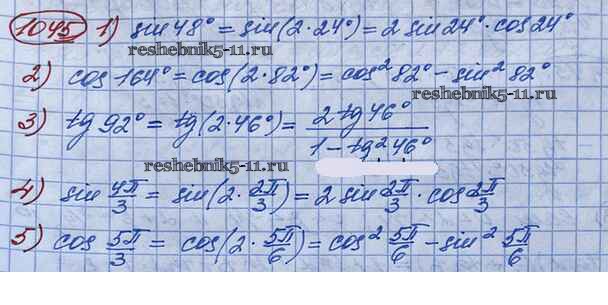 1045 1) sin 48° = sin(2·24°) = 2 sin 24° · cos 24°
reshebnik5-11.ru
2) cos 164° = cos(2·82°) = cos² 82° – sin² 82°
reshebnik5-11.ru
3) tg 92° = tg(2·46°) = 2 tg 46° / 1 – tg² 46°
reshebnik5-11.ru
4) sin 4π/3 = sin(2 · 2π/3) = 2 sin 2π/3 · cos 2π/3
5) cos 5π/3 = cos(2 · 5π/6) = cos² 5π/6 – sin² 5π/6